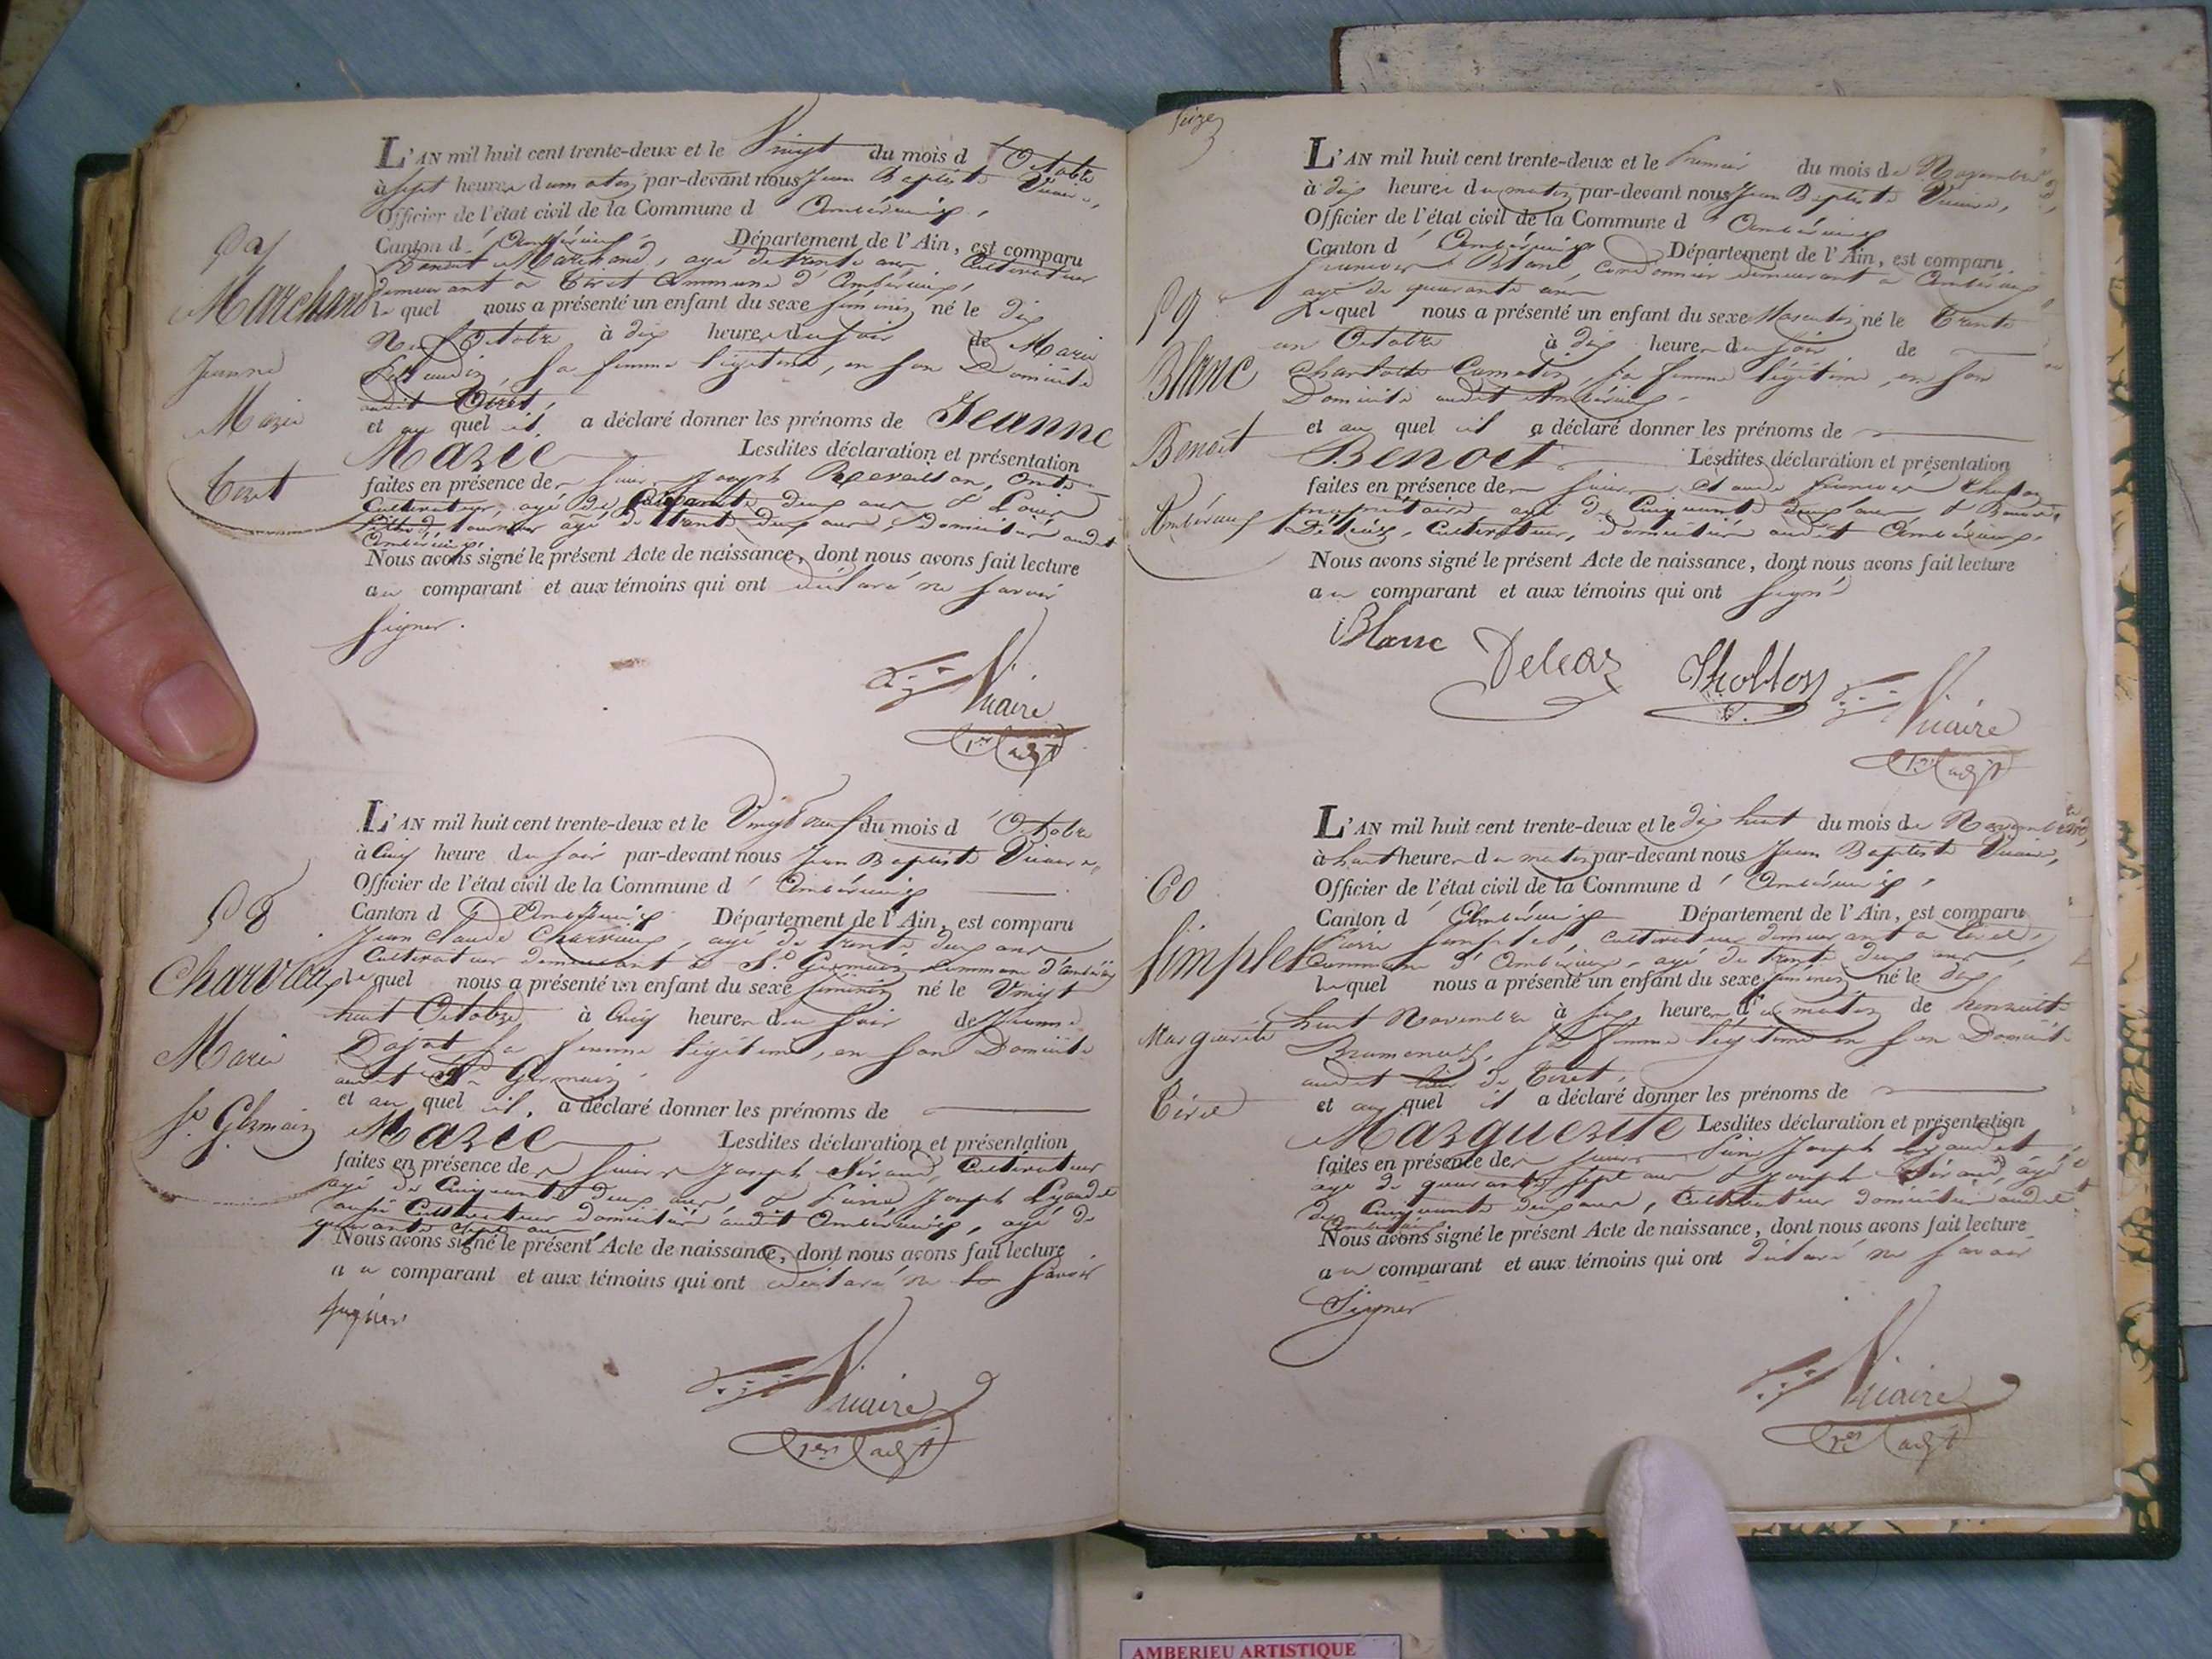 L'AN mil huit cent trente-deux et le Vingt du mois d'Octobre
à sept heures du matin par-devant nous Jean Baptiste Vicaire,
Officier de l'état civil de la Commune d'Ambérieux,
Canton d'Ambérieux Département de l'Ain, est comparu
Marchand, agé de trente ans Cultivateur
demeurant à Tiret Commune d'Ambérieux,
57
Marchand
Jeanne
Marie
Tiret
lequel nous a présenté un enfant du sexe féminin né le dix
Neuf Octobre à dix heures du soir de Marie
sa femme légitime, en son Domicile
audit Tiret,
et auquel il a déclaré donner les prénoms de Jeanne
Marie Lesdites déclaration et présentation
faites en présence de Joseph
Cultivateur, agé de deux ans & Louis
agé de trente deux ans, domiciliés audit
Ambérieux.
Nous avons signé le présent Acte de naissance, dont nous avons fait lecture
au comparant et aux témoins qui ont déclaré ne savoir
signer.
Vicaire
1er adjt
L'AN mil huit cent trente-deux et le Vingt neuf du mois d'Octobre
à Cinq heure du soir par-devant nous Jean Baptiste Vicaire,
Officier de l'état civil de la Commune d'Ambérieux
Canton d'Ambérieux Département de l'Ain, est comparu
Jean Claude agé de trente deux ans
Cultivateur demeurant à St. Germain Commune d'Ambérieux
58
Marie
St. Germain
lequel nous a présenté un enfant du sexe féminin né le Vingt
huit Octobre à Cinq heures du soir de Jeanne
sa femme légitime, en son Domicile
audit St. Germain
et auquel il a déclaré donner les prénoms de
Marie Lesdites déclaration et présentation
faites en présence de Joseph Cultivateur
agé de Cinquante deux ans, & Joseph
aussi Cultivateur domiciliés audit Ambérieux, agé de
quarante sept ans
Nous avons signé le présent Acte de naissance, dont nous avons fait lecture
au comparant et aux témoins qui ont déclaré ne savoir
signer
Vicaire
1er adjt
Seize
L'AN mil huit cent trente-deux et le Premier du mois de Novembre
à dix heures du matin par-devant nous Jean Baptiste Vicaire,
Officier de l'état civil de la Commune d'Ambérieux
Canton d'Ambérieux Département de l'Ain, est comparu
François Blanc, cordonnier demeurant à Ambérieux
agé de quarante ans
59
Blanc
Benoit
Ambérieux
Lequel nous a présenté un enfant du sexe Masculin né le Trente
un Octobre à dix heures du soir de
Charlotte sa femme légitime, en son
Domicile audit Ambérieux.
et auquel il a déclaré donner les prénoms de
Benoit Lesdites déclaration et présentation
faites en présence de Claude François
propriétaire agé de Cinquante deux ans, &
Cultivateur, domiciliés audit Ambérieux.
Nous avons signé le présent Acte de naissance, dont nous avons fait lecture
au comparant et aux témoins qui ont signé
Blanc
Vicaire
1er adjt
L'AN mil huit cent trente-deux et le dix huit du mois de Novembre
à huit heures du matin par-devant nous Jean Baptiste Vicaire,
Officier de l'état civil de la Commune d'Ambérieux,
Canton d'Ambérieux Département de l'Ain, est comparu
Pierre Simplet, cultivateur demeurant à Tiret,
Commune d'Ambérieux, agé de trente deux ans,
60
Simplet
Marguerite
Tiret
lequel nous a présenté un enfant du sexe féminin né le dix
huit Novembre à six heures du matin de
sa femme légitime en son Domicile
audit lieu de Tiret,
et auquel il a déclaré donner les prénoms de
Marguerite Lesdites déclaration et présentation
faites en présence de Joseph
agé de quarante sept ans & Joseph agé
de Cinquante deux ans, Cultivateurs domiciliés audit
Ambérieux
Nous avons signé le présent Acte de naissance, dont nous avons fait lecture
au comparant et aux témoins qui ont déclaré ne savoir
Signer
Vicaire
1er adjt
AMBERIEU ARTISTIQUE